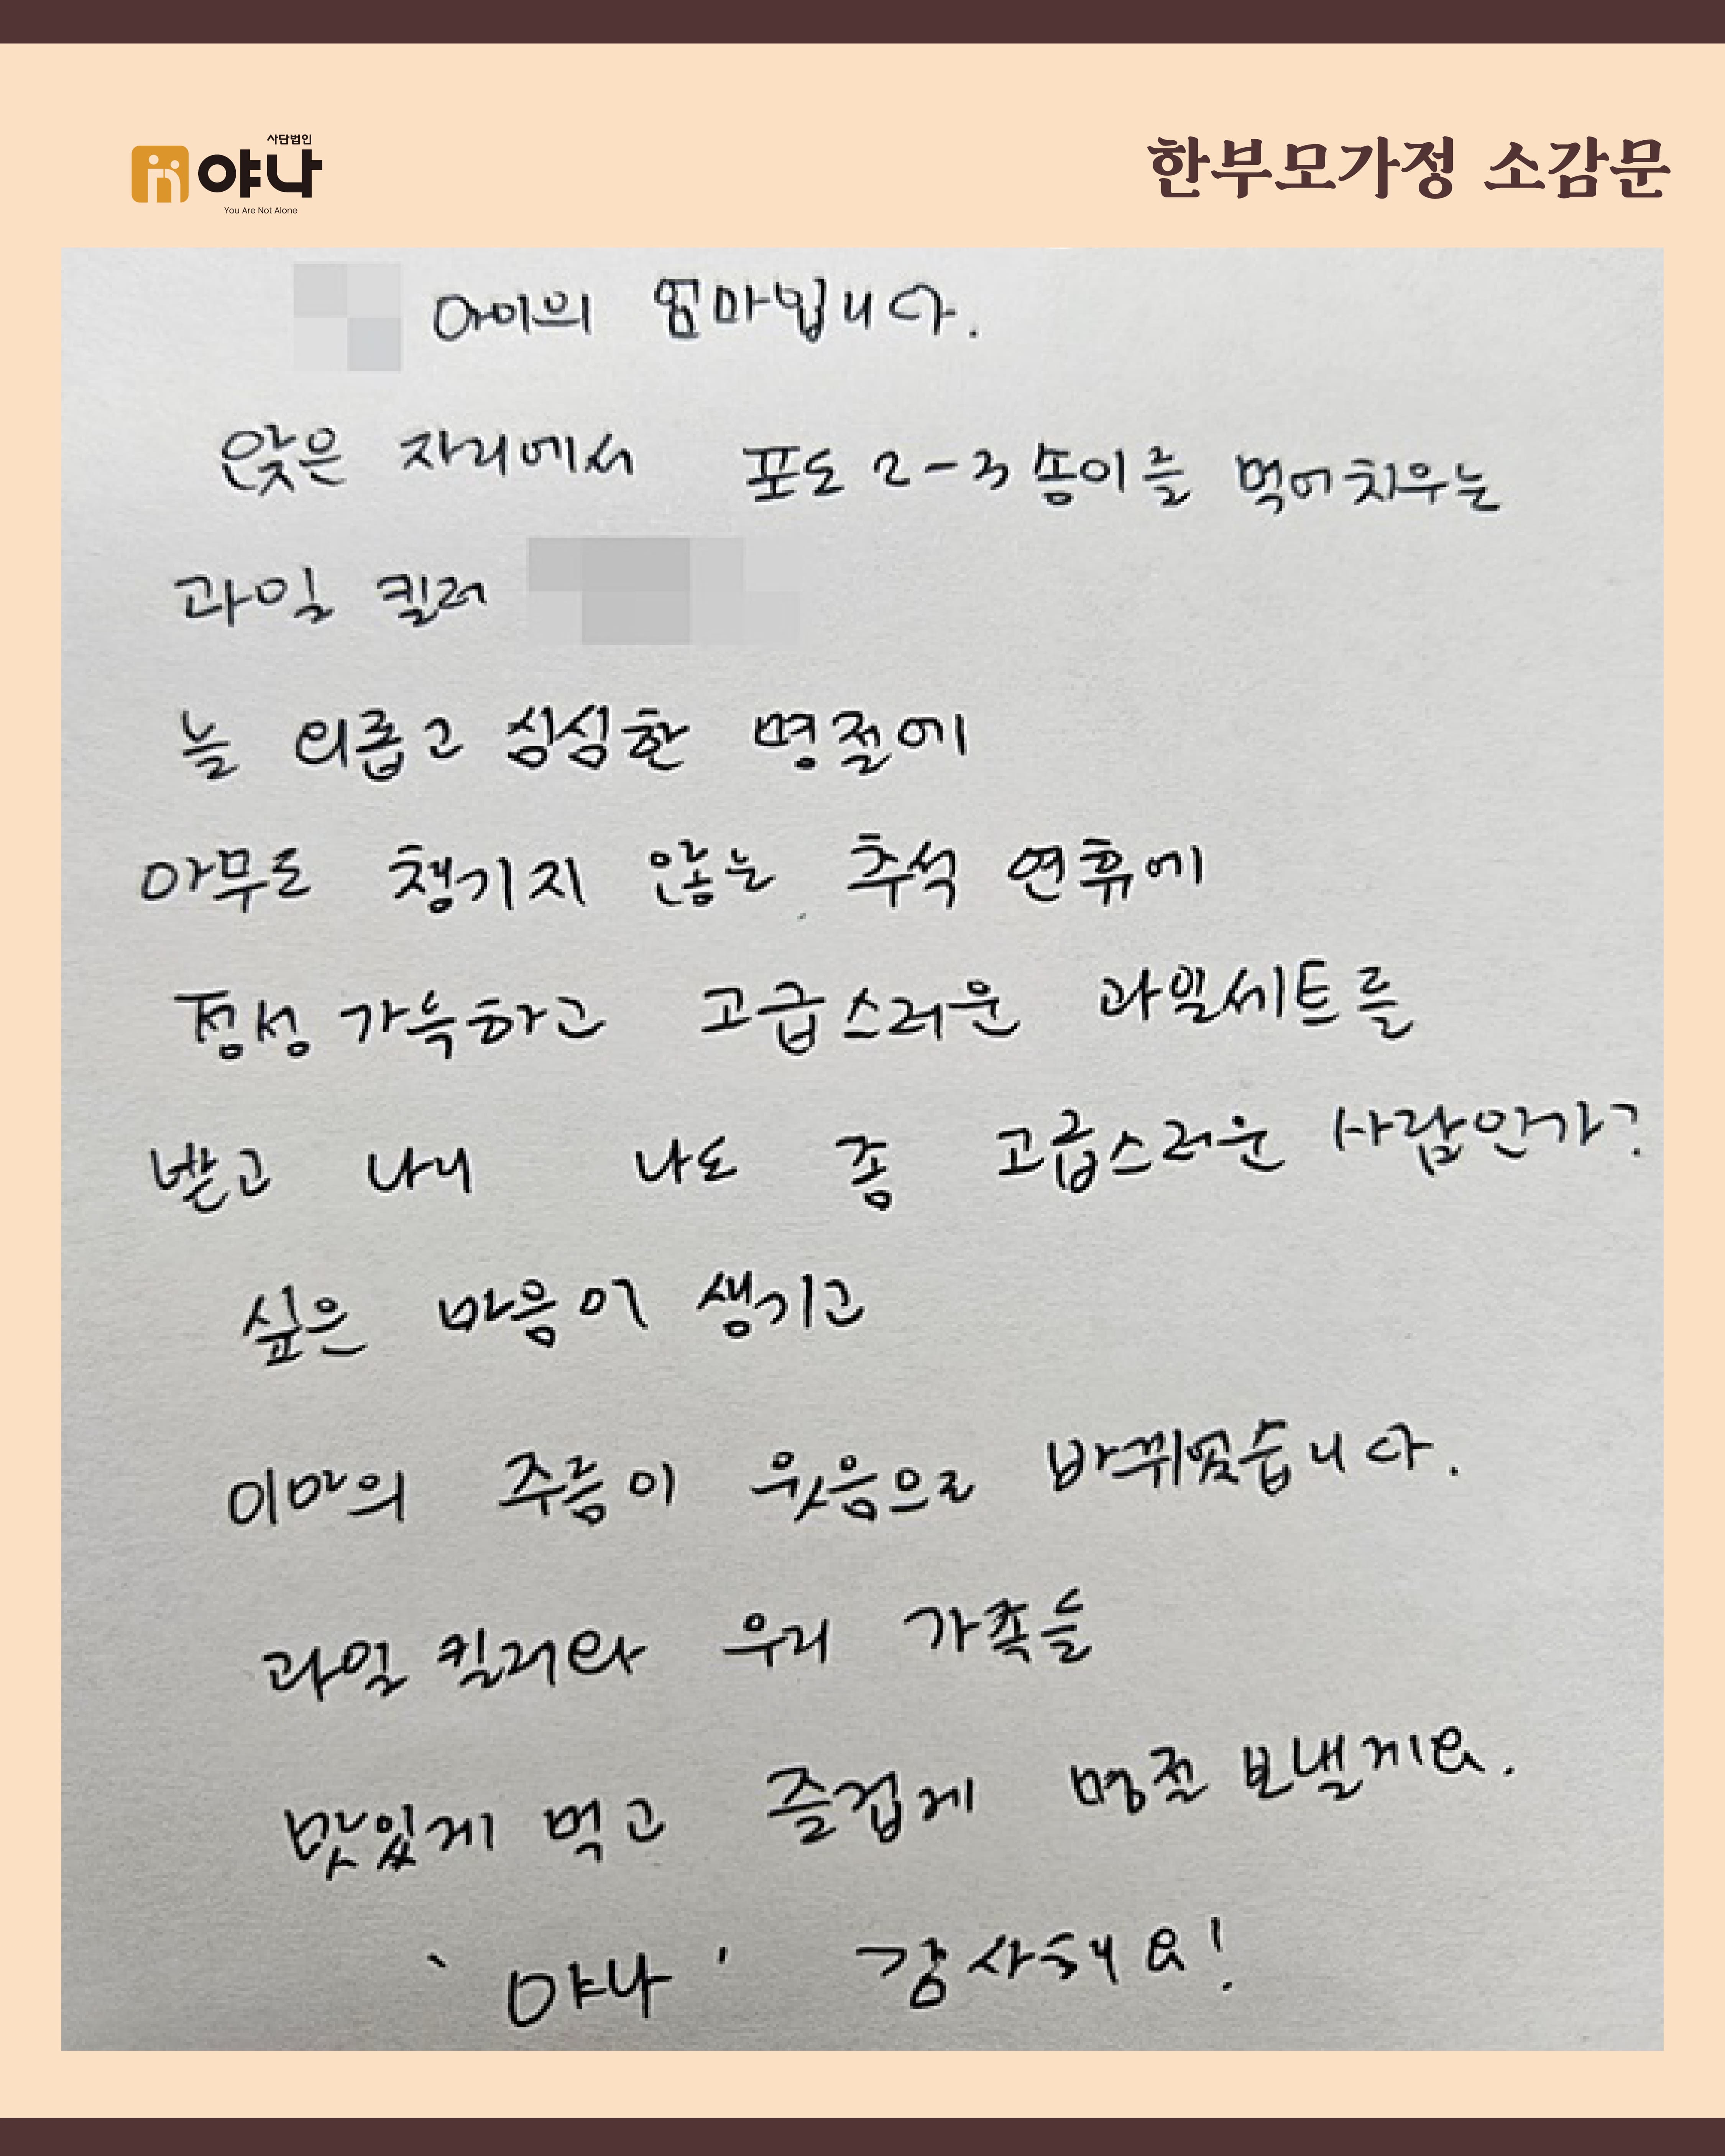 사단법인
야나
You Are Not Alone
한부모가정 소감문
아이의 엄마입니다.
앉은 자리에서 포도 2-3송이를 먹어치우는
과일 킬러
늘 외롭고 심심한 명절에
아무도 챙기지 않는 추석 연휴에
정성 가득하고 고급스러운 과일세트를
받고 나니 나도 좀 고급스러운 사람인가?
싶은 마음이 생기고
이마의 주름이 웃음으로 바뀌었습니다.
과일 킬러와 우리 가족들
맛있게 먹고 즐겁게 명절 보낼게요.
'야나' 감사해요!